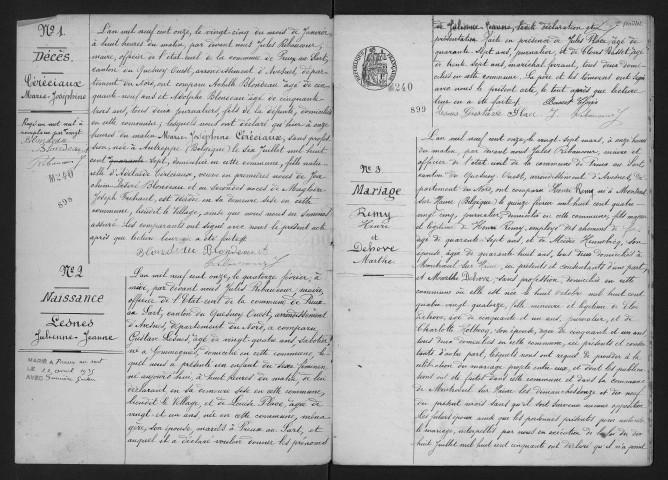 N° 1
Décès
Céréciaux
Marie-Joséphine
M240
898
L'an mil neuf cent onze, le vingt cinq du mois de Janvier
à huit heures du matin, par devant nous Jules Rihaucour
maire, officier de l'état-civil de la commune de Preux au Sart,
canton du Quesnoy Ouest, arrondissement d'Avesnes, département
du Nord, ont comparu Achille Blondeau âgé de
quarante ans et Adolphe Blondeau âgé de cinquante
trois ans, tous deux journaliers, fils de la défunte, domiciliés en
cette commune, lesquels nous ont déclaré que hier à onze
heures du matin Marie Joséphine Céréciaux, sans profession,
née à Autreppe (Belgique) le six Juillet mil huit
cent sept, domiciliée en cette commune, fille naturelle
d'Adélaïde Céréciaux, veuve en premières noces de
Désiré Blondeau et en secondes noces de
Joseph est décédée en sa demeure sise en cette
commune, lieudit le Village, ainsi que nous nous en sommes
assuré. Les comparants ont signé avec nous le présent acte
après que lecture leur en a été faite.
N° 2
Naissance
Lesnes
Julienne-Jeanne
MARIÉE à Preux au Sart
LE 22 avril 1935
AVEC
L'an mil neuf cent onze, le quatorze février, à
midi, par devant nous Jules Rihaucour, maire,
officier de l'état-civil de la commune de Preux
au Sart, canton du Quesnoy Ouest, arrondissement
d'Avesnes, département du Nord, a comparu
Gustave Lesnes, âgé de vingt-quatre ans,
né à Gommegnies, domicilié en cette commune, lequel
nous a présenté un enfant du sexe féminin
né aujourd'hui, à huit heures du matin, de lui
déclarant en sa demeure sise en cette commune,
lieudit le Village, et de Louise Place, âgée de
vingt et un ans, née en cette commune, ménagère,
son épouse, mariés à Preux au Sart, et
auquel il a déclaré vouloir donner les prénoms
de Julienne-Jeanne, ladite déclaration et
présentation faite en présence de Jules Place, âgé de
quarante sept ans, journalier, et de Clovis Basset, âgé
de trente sept ans, maréchal ferrant, tous deux domiciliés
en cette commune. Le père et les témoins ont signé
avec nous le présent acte, le tout après que lecture
leur en a été faite.
Basset Clovis
Lesnes Gustave
M240
899
N° 3
Mariage
Remy
Henri
et
Dehove
Marthe
L'an mil neuf cent onze, le vingt sept mars, à onze heures
du matin, par devant nous, Jules Rihaucour, maire et
officier de l'état civil de la commune de Preux au Sart
canton du Quesnoy Ouest, arrondissement d'Avesnes, département
du Nord, ont comparu Henri Remy né à Montroeul
sur Haine (Belgique) le quinze février mil huit cent quatre
vingt cinq, journalier, domicilié en cette commune, fils majeur
et légitime de Henri Remy, employé des chemins de fer,
âgé de quarante sept ans, et de
âgée de quarante huit ans, tous deux domiciliés à
Montroeul sur Haine, ici présents et consentants d'une part;
et Marthe Dehove, sans profession, domiciliée en cette
commune où elle est née le huit octobre mil huit cent
quatre vingt quatorze, fille mineure et légitime de
Dehove, âgé de cinquante et un ans, et de
Charlotte son épouse, âgée de cinquante et un ans
tous deux domiciliés en cette commune, ici présents et consentants
d'autre part, lesquels nous ont requis de procéder à la
célébration du mariage projeté entre eux, et dont les publications
ont été faites dans cette commune et dans la commune
de Montroeul sur Haine les dimanches douze et dix neuf
du présent mois sans qu'il soit survenu aucune opposition.
le mariage, interpellés par nous en exécution de la loi du dix
huit Juillet mil huit cent cinquante ont déclaré qu'il n'a point